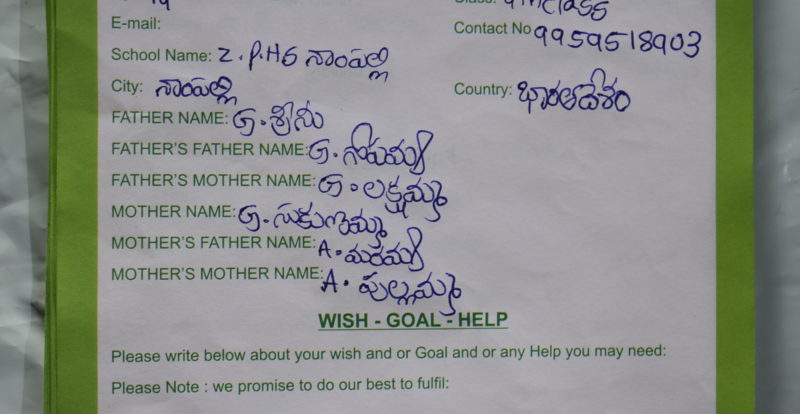 Class: 9th class
E-mail:
Contact No 9959518903
School Name: Z.P.HS నాంపల్లి
City: నాంపల్లి
Country: భారతదేశం
FATHER NAME: G. శ్రీను
FATHER'S FATHER NAME: G. గోపయ్య
FATHER'S MOTHER NAME: G. లక్ష్మమ్మ
MOTHER NAME: G. సుగుణమ్మ
MOTHER'S FATHER NAME: A.
MOTHER'S MOTHER NAME: A. పుల్లమ్మ
WISH - GOAL - HELP
Please write below about your wish and or Goal and or any Help you may need:
Please Note : we promise to do our best to fulfil: